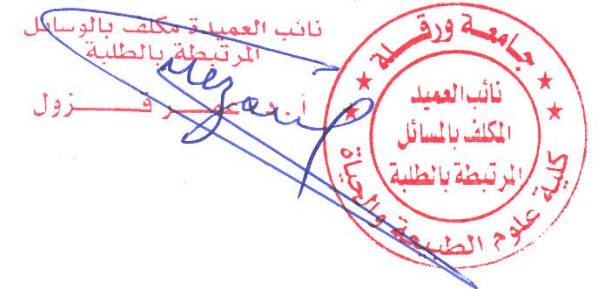 نائب العميدة مكلف بالوسائل
المرتبطة بالطلبة
أ.د عمر قزول
جامعة ورقلة
نائب العميد
المكلف بالمسائل
المرتبطة بالطلبة
كلية علوم الطبيعة والحياة